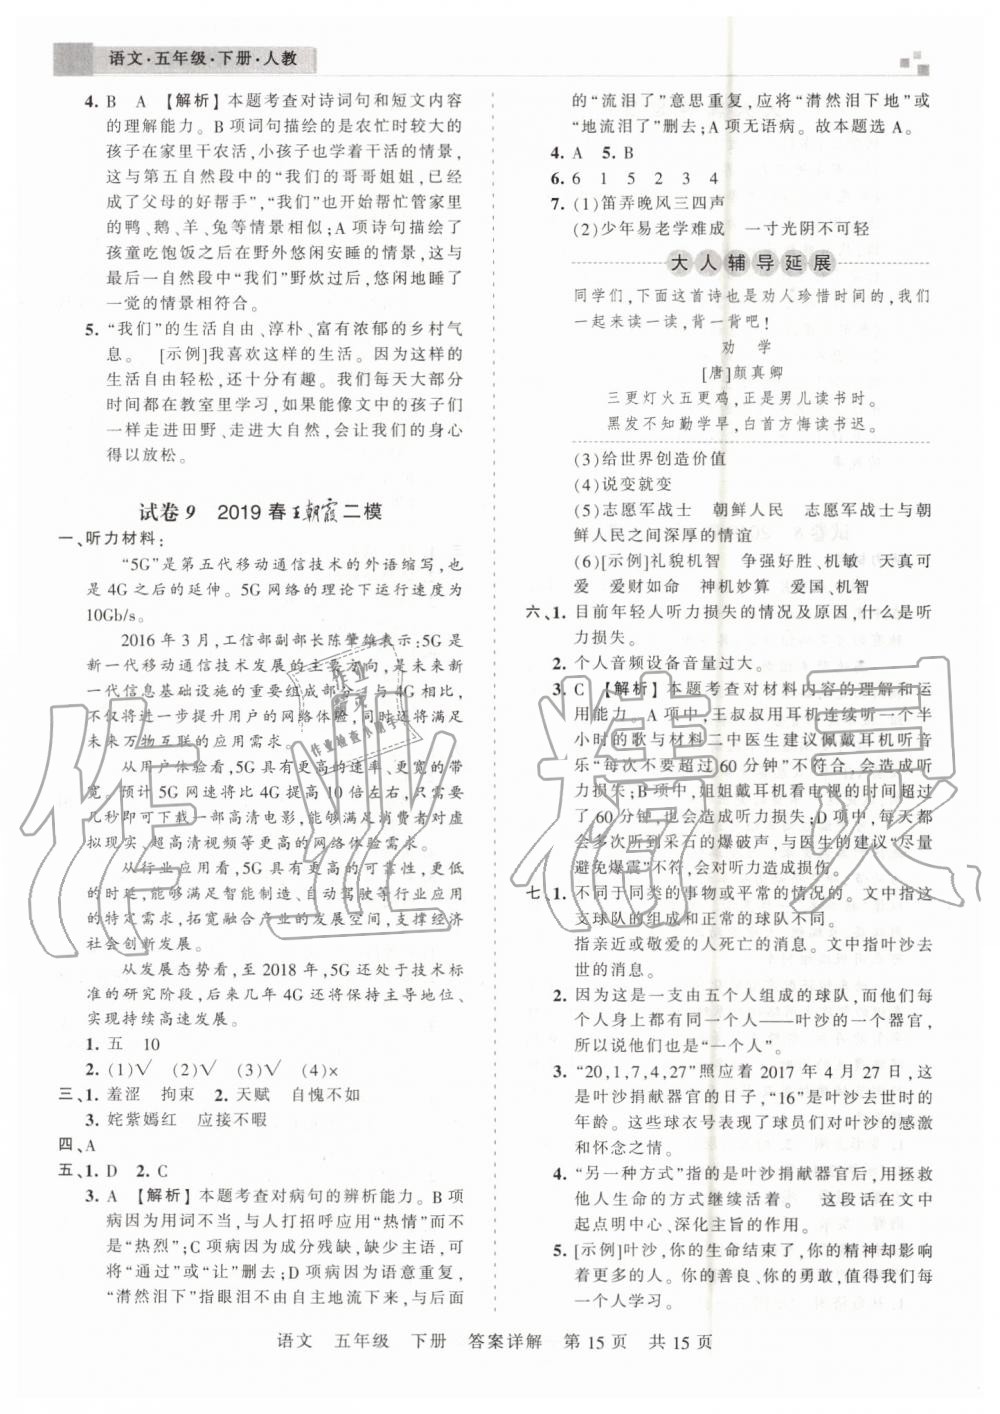 语文·五年级·下册·人教
4. B　A　【解析】本题考查对诗词句和短文内容
的理解能力。B 项词句描绘的是农忙时较大的
孩子在家里干农活,小孩子也学种瓜的情景,
这与第五自然段中的“我们的哥哥姐姐,已经
成了父母的好帮手”,“我们”也开始帮忙管家里
的鸭、鹅、羊、兔等情景相似;A 项诗句描绘了
孩童吃饱饭之后在野外悠闲安睡的情景,与最
后一自然段中“我们”野炊过后,悠闲地睡了
一觉的情景相符合。
5. “我们”的生活自由、淳朴、富有浓郁的乡村气
息。　[示例]我喜欢这样的生活。因为这样的
生活自由轻松,还十分有趣。我们每天大部分
时间都在教室里学习,如果能像文中的孩子们
一样走进田野、走进大自然,会让我们的身心
得以放松。
试卷 9　2019 春王朝霞二模
一、听力材料:
“5G”是第五代移动通信技术的外语缩写,也
是 4G 之后的延伸。5G 网络的理论下运行速度为
10Gb/s。
2016 年 3 月,工信部副部长陈肇雄表示:5G
是新一代移动通信技术发展的主要方向,是未来新
一代信息基础设施的重要组成部分。与 4G 相比,
不仅将进一步提升用户的网络体验,同时还将满足
未来万物互联的应用需求。
从用户体验看,5G 具有更高的速率、更宽的带
宽。预计 5G 网速将比 4G 提高 10 倍左右,只需要
几秒即可下载一部高清电影,能够满足消费者对虚
拟现实、超高清视频等更高的网络体验需求。
从行业应用看,5G 具有更高的可靠性,更低
的时延,能够满足智能制造、自动驾驶等行业应用
的特定需求,拓宽融合产业的发展空间,支撑经济
社会创新发展。
从发展态势看,至 2018 年,5G 还处于技术标
准的研究阶段,后来几年 4G 还将保持主导地位、
实现持续高速发展。
1. 五　10
2. (1)√　(2)√　(3)√　(4)×
三、1. 羞涩　拘束　2. 天赋　自愧不如
3. 姹紫嫣红　应接不暇
四、A
五、1. D　2. C
3. A　【解析】本题考查对病句的辨析能力。B 项
病因为用词不当,与人打招呼应用“热情”而不
是“热烈”;C 项病因为成分残缺,缺少主语,可
将“通过”或“让”删去;D 项病因为语意重复,
“潸然泪下”指眼泪不由自主地流下来,与后面
的“流泪了”意思重复,应将“潸然泪下地”或
“地流泪了”删去;A 项无语病。故本题选 A。
4. A　5. B
6. 6　1　5　2　3　4
7. (1)笛弄晚风三四声
(2)少年易老学难成　一寸光阴不可轻
大人辅导延展
同学们,下面这首诗也是劝人珍惜时间的,我们
一起来读一读,背一背吧!
劝　学
[唐]颜真卿
三更灯火五更鸡,正是男儿读书时。
黑发不知勤学早,白首方悔读书迟。
(3)给世界创造价值
(4)说变就变
(5)志愿军战士　朝鲜人民　志愿军战士与朝
鲜人民之间深厚的情谊
(6)[示例]礼貌机智　争强好胜、机敏　天真可
爱　爱财如命　神机妙算　爱国、机智
六、1. 目前年轻人听力损失的情况及原因,什么是听
力损失。
2. 个人音频设备音量过大。
3. C　【解析】本题考查对材料内容的理解和运
用能力。A 项中,王叔叔用耳机连续听一个半
小时的歌与材料二中医生建议佩戴耳机听音
乐“每次不要超过 60 分钟”不符合,会造成听
力损失;B 项,姐姐戴耳机看电视的时间超过
了 60 分钟,也会造成听力损失;D 项中,每天都
会多次听到采石的爆破声,与医生的建议“尽量
避免爆震”不符,会对听力造成损伤。
七、1. 不同于同类的事物或平常的情况的。文中指这
支球队的组成和正常的球队不同。
指亲近或敬爱的人死亡的消息。文中指叶沙去
世的消息。
2. 因为这是一支由五个人组成的球队,而他们每
个人身上都有同一个人——叶沙的一个器官,
所以说他们也是“一个人”。
3. “20,1,7,4,27”照应着 2017 年 4 月 27 日,这
是叶沙捐献器官的日子,“16”是叶沙去世时的
年龄。这些球衣号表现了球员们对叶沙的感激
和怀念之情。
4. “另一种方式”指的是叶沙捐献器官后,用拯救
他人生命的方式继续活着。　这段话在文中
起点明中心、深化主旨的作用。
5. [示例]叶沙,你的生命结束了,你的精神却影响
着更多的人。你的善良、你的勇敢,值得我们每
一个人学习。
语文　五年级　下册　答案详解　第 15 页　共 15 页
作业精灵